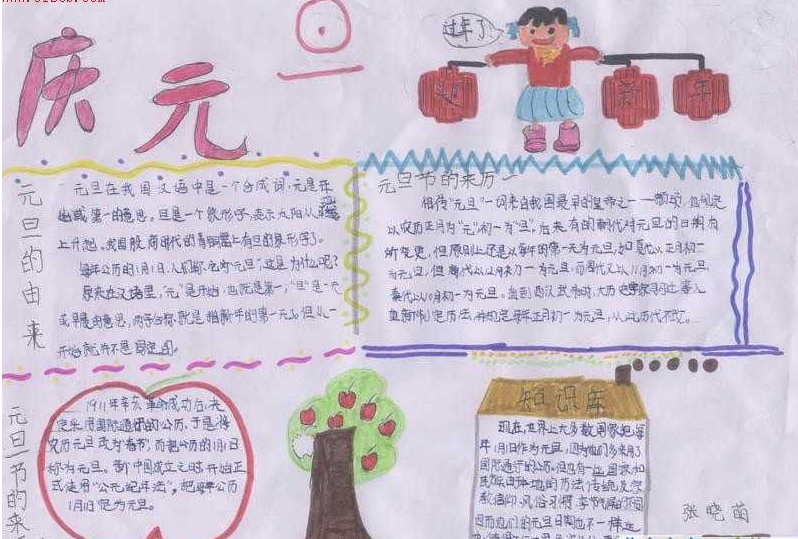 庆元旦
过年了
迎新年
元旦的由来
元旦在我国汉语中是一个合成词,元是年
或第一的意思。旦是一个象形字,表示太阳从
上升起。我国殷商时代的青铜器上有旦的象形字了。
每年公历的1月1日,人们都称它为"元旦",这是为什么呢?
原来在汉语里,"元"是开始,也就是第一,"旦"是一天
或早晨的意思,两字合称就是指新年的第一天。但从一
开始就并不是固定的。
元旦节的来历
相传"元旦"一词来自我国最早的皇帝之一——颛顼,他规定
以农历正月为"元",初一为"旦",后来有的朝代对元旦的日期有
所变更,但原则上还是以每年的第一天为元旦,如夏代以正月初一
为元旦,但商代以12月初一为元旦,而周代又以11月初一为元旦,
秦代以10月初一为元旦。直到西汉武帝时,大历史学家司马迁等人
重新修定历法,并规定每年正月初一为元旦,从此历代不变。
元旦节的来
1911年辛亥革命成功后,决
定采用国际通行的公历,于是将
农历元旦改为"春节",而把公历的1月1日
称为元旦。新中国成立之时,开始正
式使用"公元纪年法",把每年公历
1月1日定为元旦。
知识库
现在,世界上大多数国家把每
年1月1日作为元旦,因为他们多采用了
国际通行的公历。但也有一些国家和
民族由于本地的历法传统及宗
教信仰、风俗习惯、季节气候的不同
因而他们的元旦日期也不一样
张晓菌